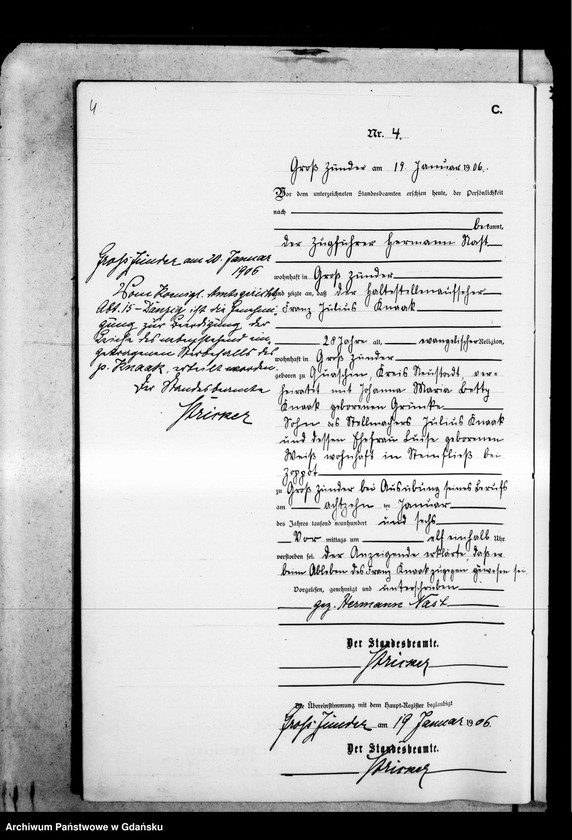 4
C.
Nr. 4.
Groß Zünder am 19 Januar 1906.
Vor dem unterzeichneten Standesbeamten erschien heute, der Persönlichkeit
nach
bekannt,
der Zugführer Hermann Nast
wohnhaft in Groß Zünder
und zeigte an, daß der Haltestellenaufseher
Franz Julius Knaak
28 Jahre alt, evangelischer Religion,
wohnhaft in Groß Zünder
geboren zu Quaschin, Kreis Neustadt, ver-
heiratet mit Johanna Maria Betty
Knaak geborenen Grunke
Sohn des Stellmachers Julius Knaak
und dessen Ehefrau Luise geborenen
Weiß wohnhaft in Steinfließ bei
Zoppot
zu Groß Zünder bei Ausübung seines Berufs
am achtzehn ten Januar
des Jahres tausend neunhundert und sechs
Vor mittags um elf einhalb Uhr
verstorben sei. Der Anzeigende erklärte, daß er
beim Ableben des Franz Knaak zugegen gewesen sei.
Vorgelesen, genehmigt und unterschrieben
gez. Hermann Nast
Der Standesbeamte.
Die Übereinstimmung mit dem Haupt-Register beglaubigt
Groß Zünder am 19 Januar 1906.
Der Standesbeamte.
Groß Zünder am 20. Januar
1906
Vom Königl. Amtsgericht
Abt. 15 - Danzig ist die Genehmi-
gung zur Beerdigung der
Leiche des nebenstehend ein-
getragenen Sterbefalls des
p. Knaak, erteilt worden.
Der Standesbeamte
Archiwum Państwowe w Gdańsku